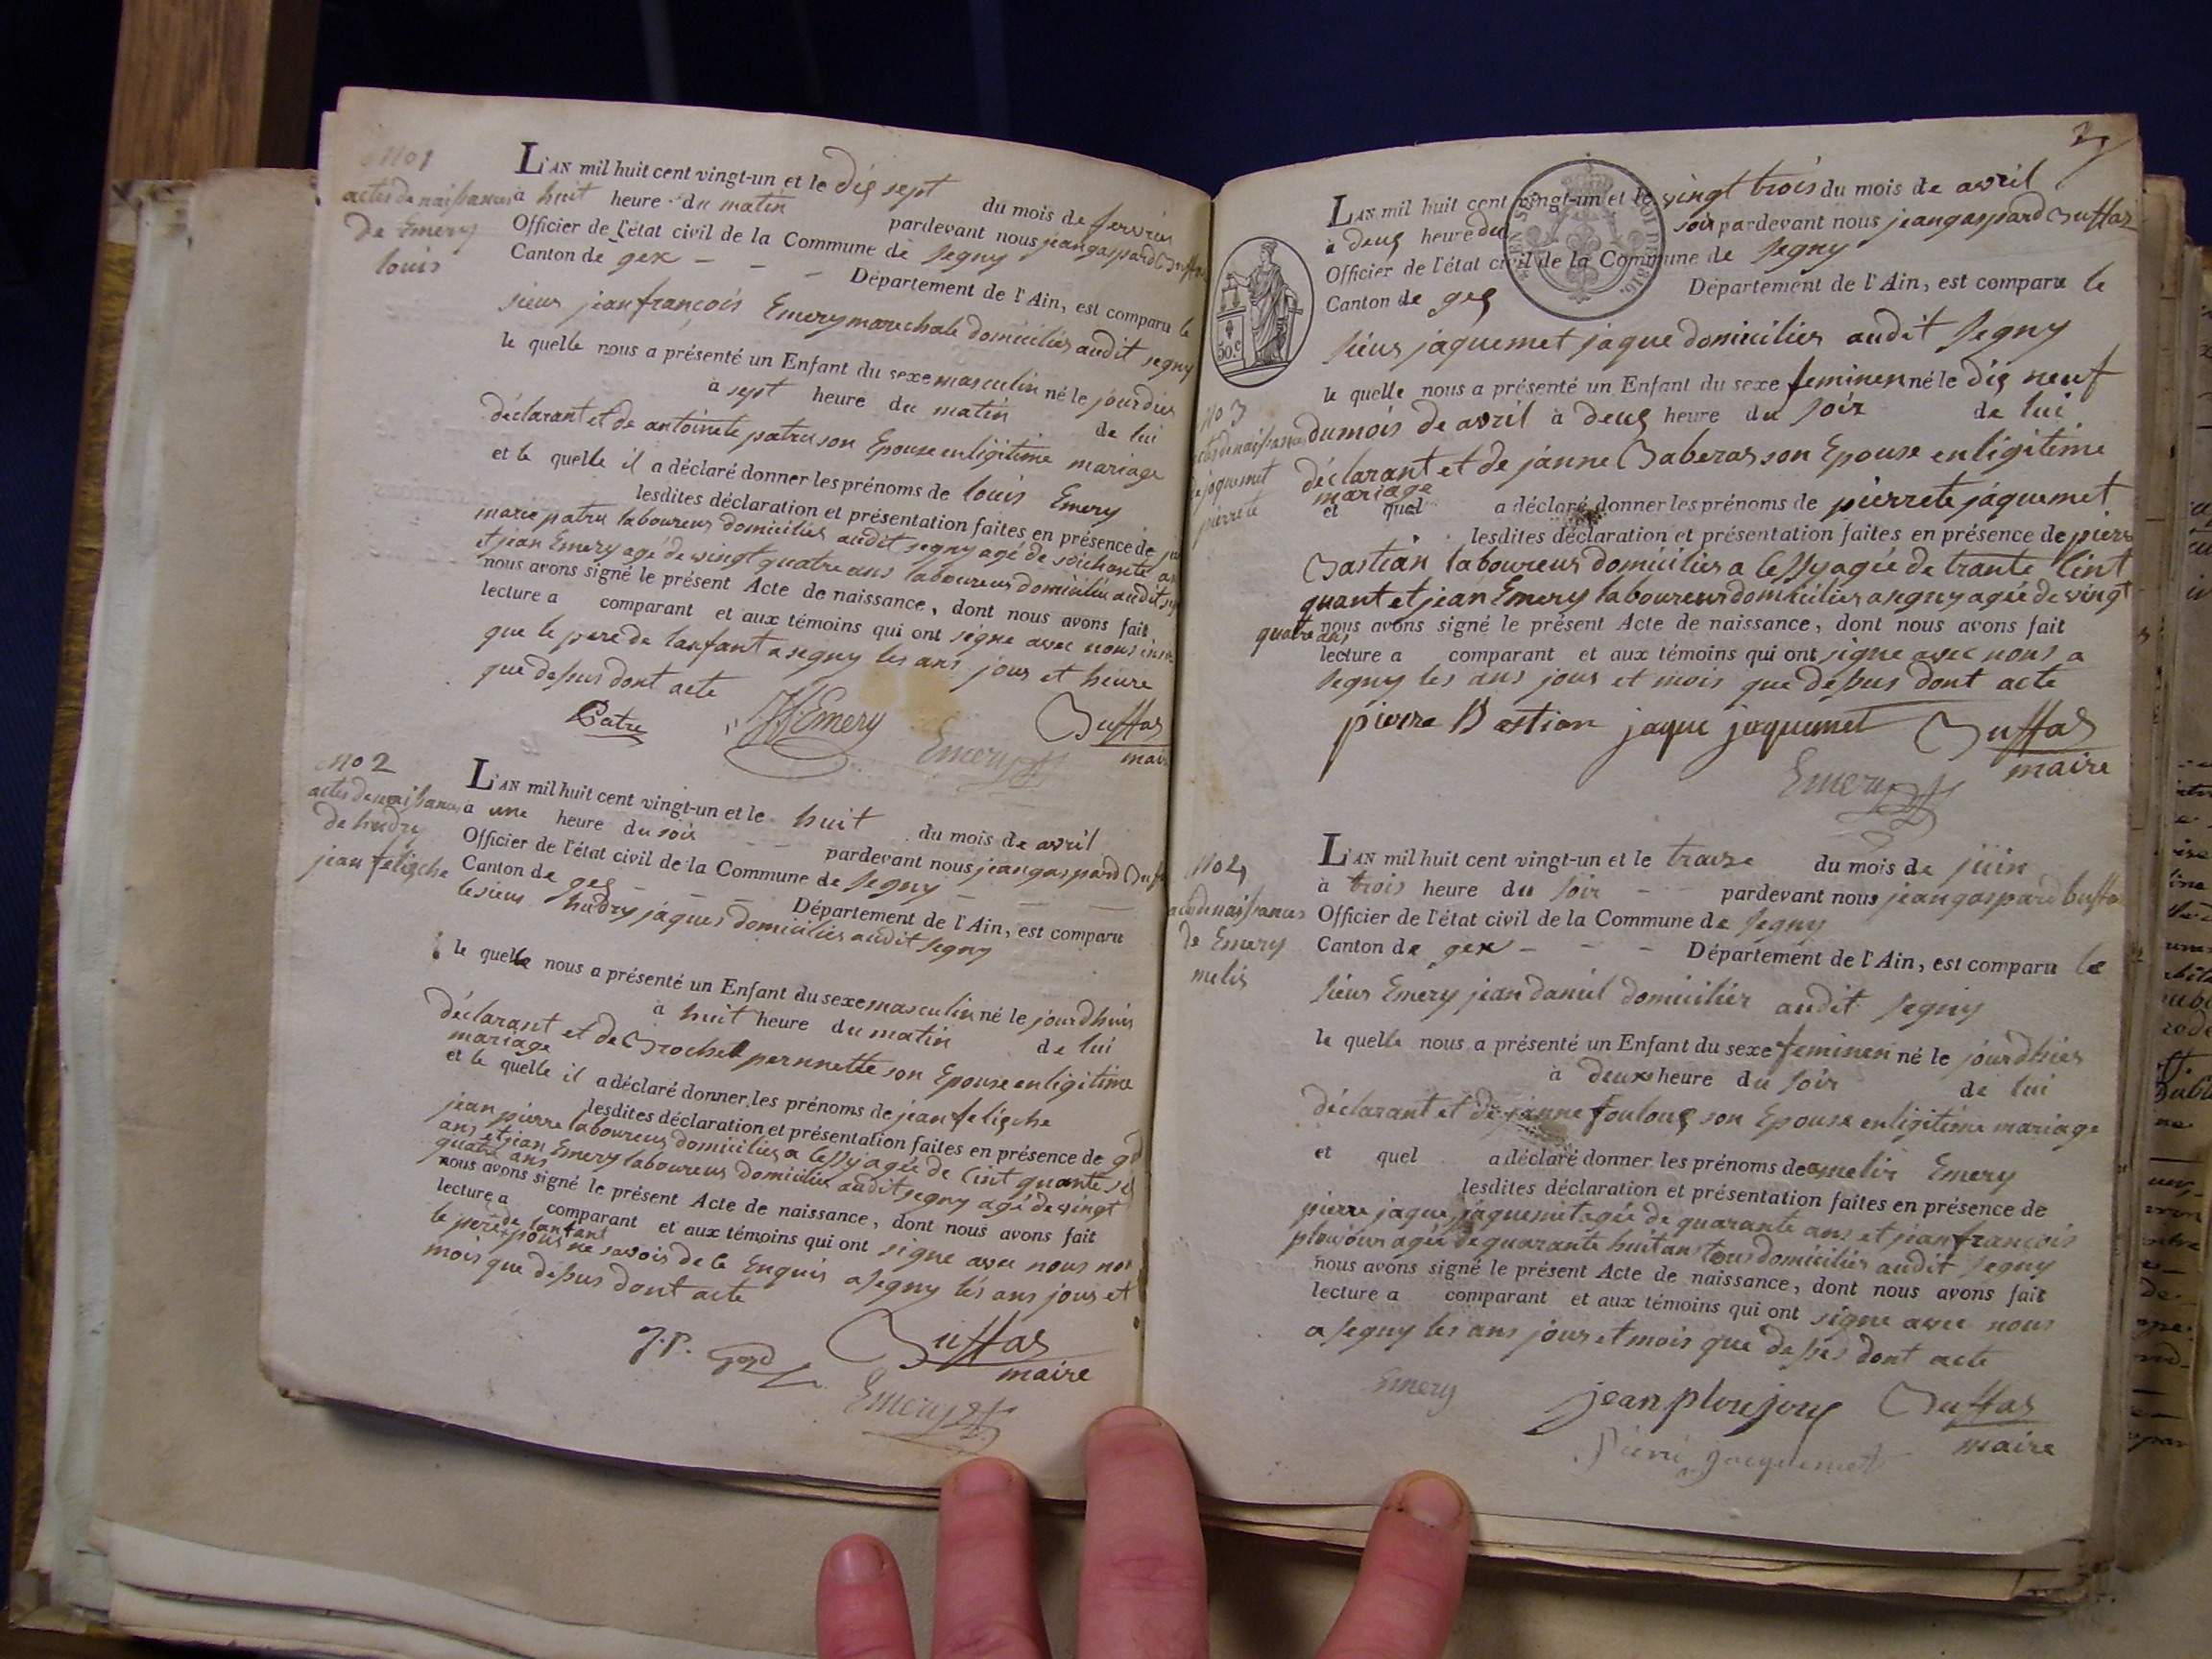 No 1
actes de naissances
de Emery
louis
L'AN mil huit cent vingt-un et le dis sept du mois de fevrier
à huit heure du matin pardevant nous jean gaspard Buffas
Officier de l'état civil de la Commune de Segny
Canton de gex - - - Département de l'Ain, est comparu le
sieur jean françois Emery marechale domicilier audit segny
le quelle nous a présenté un Enfant du sexe masculin né le jourdier
à sept heure du matin de lui
déclarant et de antoinete patru son Epouse en ligitime mariage
et le quelle il a déclaré donner les prénoms de louis Emery
lesdites déclaration et présentation faites en présence de
marie patru laboureur domicilier audit segny agé de soichante
et jean Emery agé de vingt quatre ans laboureur domicilié audit
nous avons signé le présent Acte de naissance, dont nous avons fait
lecture a comparant et aux témoins qui ont signe avec nous
que le pere de lanfant a segny les ans jour et heure
que desus dont acte
Patru JF Emery Buffas
Emery maire
No 2
actes de naissances
de hudry
jean feligche
L'AN mil huit cent vingt-un et le huit du mois de avril
à une heure du soir pardevant nous jean gaspard
Officier de l'état civil de la Commune de Segny
Canton de geg Département de l'Ain, est comparu
le sieur hudry jaques domicilier audit segny
le quelle nous a présenté un Enfant du sexe masculin né le jourdhuis
à huit heure du matin de lui
déclarant et de Brochet pernnette son Epouse en ligitime
mariage
et le quelle il a déclaré donner les prénoms de jean feligche
lesdites déclaration et présentation faites en présence de
jean pierre laboureur domicilier a Cessy agée de Cint quante
ans et jean Emery laboureur domicilier audit segny agé de vingt
quatre ans
nous avons signé le présent Acte de naissance, dont nous avons fait
lecture a comparant et aux témoins qui ont signe avec nous non
le pere de lanfant
pour ne savoir de le Enquis a Segny les ans jour et
mois que desus dont acte
J.P. Gozd Buffas
maire
Emery
L'AN mil huit cent vingt-un et le vingt trois du mois de avril
à deug heure du soir pardevant nous jean gaspard Buffas
Officier de l'état civil de la Commune de Segny
Canton de geg Département de l'Ain, est comparu le
sieur jaquemet jaque domicilier audit Segny
50.c
No 3
de jaquemet
pierrete
le quelle nous a présenté un Enfant du sexe feminen né le dig neuf
du mois de avril à deug heure du soir de lui
déclarant et de janne Baberas son Epouse en ligitime
mariage
et quel a déclaré donner les prénoms de pierrete jaquemet
lesdites déclaration et présentation faites en présence de pierre
Bastian laboureur domicilier a Cessy agée de trante Cint
quant et jean Emery laboureur domicilier a segny agée de vingt
quatre ans
nous avons signé le présent Acte de naissance, dont nous avons fait
lecture a comparant et aux témoins qui ont signe avec nous a
Segny les ans jour et mois que desus dont acte
pierre Bastian jaque jaquemet Buffas
maire
Emery
No 4
de Emery
melir
L'AN mil huit cent vingt-un et le traize du mois de juin
à trois heure du soir - - pardevant nous jean gaspard buffas
Officier de l'état civil de la Commune de Segny
Canton de gex - - - Département de l'Ain, est comparu le
sieur Emery jean daniel domicilier audit Segny
le quelle nous a présenté un Enfant du sexe feminen né le jourdhier
à deux heure du soir de lui
déclarant et de janne fouloug son Epouse en ligitime mariage
et quel a déclaré donner les prénoms de amelir Emery
lesdites déclaration et présentation faites en présence de
pierre jaque jaquemet agée de quarante ans et jean francois
ploujour agée de quarante huit ans tous domicilier audit Segny
nous avons signé le présent Acte de naissance, dont nous avons fait
lecture a comparant et aux témoins qui ont signe avec nous
a Segny les ans jour et mois que desus dont acte
Emery jean ploujoug Buffas
maire
pierre jacquemet